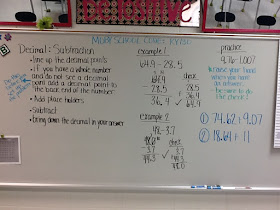 Decimal: Subtraction
- line up the decimal points
- if you have a whole number
and do not see a decimal
point add a decimal point to
the back end of the number.
- Add place holders
- subtract
- bring down the decimal in your answer
example 1
64.9 - 28.5
64.9
- 28.5
36.4
check
28.5
+ 36.4
64.9
example 2
48 - 3.7
- 3.7
44.3
check
3.7
44.3
48.0
practice
9.76 - 1.007
Raise your hand
when you have
the answer
be sure to do
the check!
① 74.62 + 9.07
② 18.64 + 11